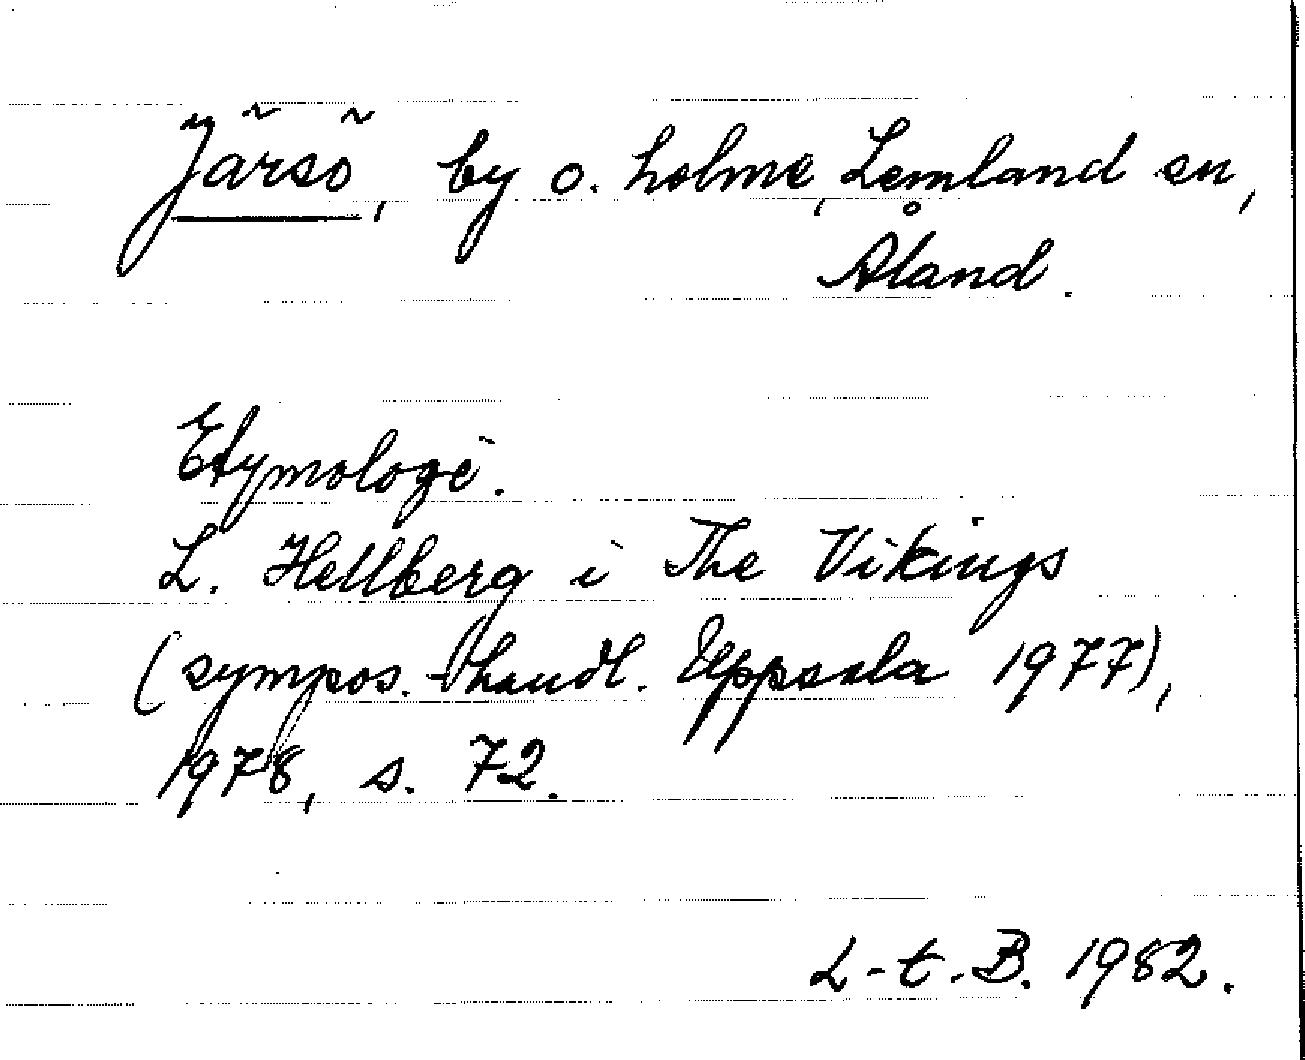 Järsö, by o. holme, Lemland sn,
Åland.
Etymologi.
L. Hellberg i The Vikings
(sympos.-handl. Uppsala 1977),
1978, s. 72.
L-t.B. 1982.